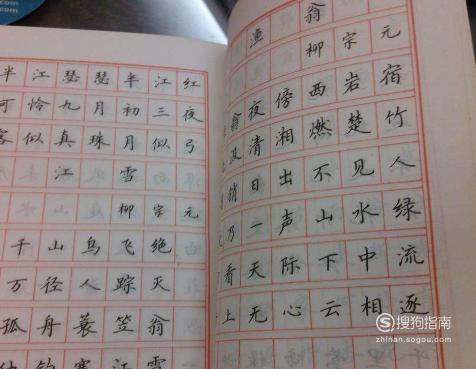 半江瑟瑟半江红
可怜九月初三夜
似真珠月似弓
江雪
柳宗元
千山鸟飞绝
万径人踪灭
孤舟蓑笠翁
钓寒江雪
渔翁
柳宗元
翁夜傍西岩宿
汲清湘燃楚竹
销日出不见人
乃一声山水绿
看天际下中流
上无心云相逐
搜狗指南
zhinan.sogou.com